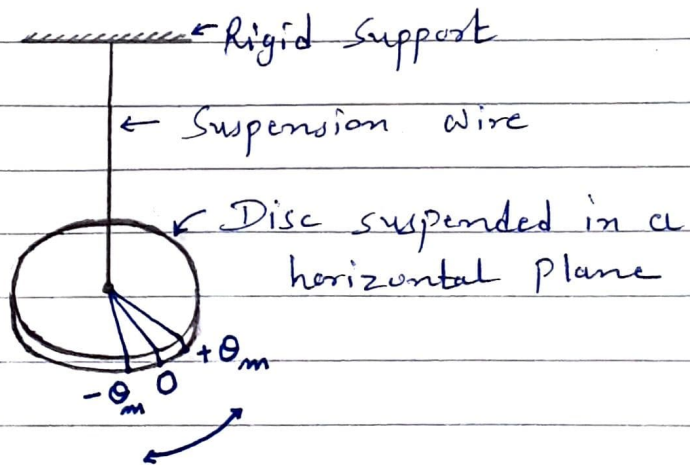 Rigid Support
Suspension wire
Disc suspended in a
horizontal Plane
-θm 0 +θm